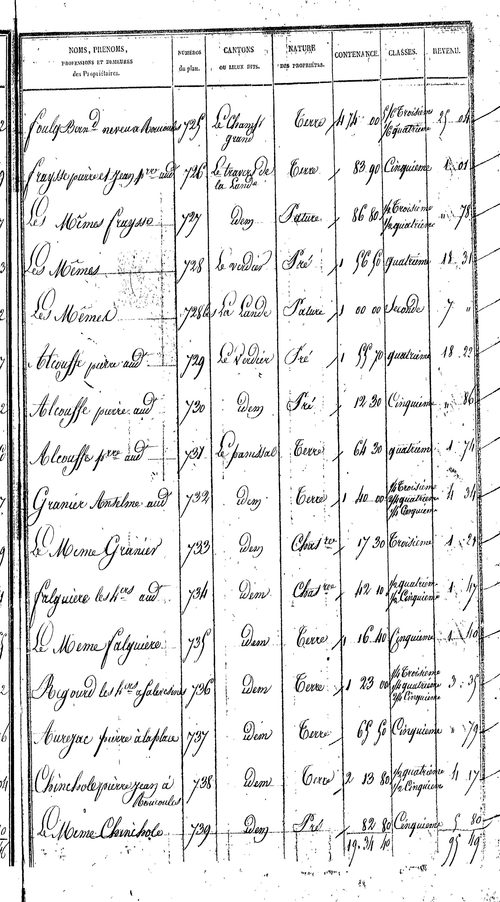 NOMS, PRENOMS, PROFESSIONS ET DEMEURES des Propriétaires. NUMÉROS du plan. CANTONS OU LIEUX DITS. NATURE DES PROPRIÉTÉS. CONTENANCE. CLASSES. REVENU.
neveu a 725 Le Champ grand Terre 4 74 00 Troisieme quatrieme 25 04
fraysse pierre et jean pre aud 726 Le travers de la Lande Terre 83 90 Cinquieme 1 01
Les Mêmes fraysse 727 idem Pature 86 80 Troisieme quatrieme " 78
Les Mêmes 728 Le verdier Pré 1 56 50 quatrieme 18 31
Les Mêmes 728 bis La Lande Pature 1 00 00 Seconde 7 "
Alcouffe pierre aud 729 Le Verdier Pré 1 55 70 quatrieme 18 22
Alcouffe pierre aud 730 idem Pré 12 30 Cinquieme " 86
Alcouffe pre aud 731 Le panissal Terre 64 30 quatriem 1 74
Granier Antelme aud 732 idem Terre 1 40 00 Troisieme quatrieme Cinquieme 4 34
Le Meme Granier 733 idem Chastre 17 30 Troisieme 1 21
falguiere les hers aud 734 idem Chastre 42 10 quatriem Cinquieme 1 47
Le Meme falguiere 735 idem Terre 1 16 40 Cinquieme 1 40
Regourd les hers 736 idem Terre 1 23 00 Troisieme quatrieme Cinquieme 3 35
Aurejac pierre à la place 737 idem Terre 65 50 Cinquieme " 79
Chinchole pierre jean à 738 idem Terre 2 13 80 quatrieme Cinquieme 4 17
Le Meme Chinchole 739 idem Pré 82 80 Cinquieme 5 80
19 34 40 95 49